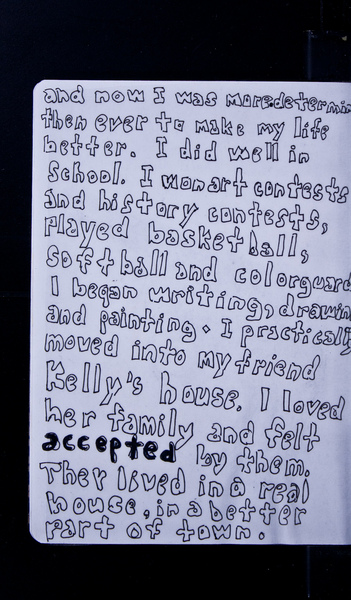 and now I was more determin
then ever to make my life
better. I did well in
school. I won art contests
and history contests,
played basketball,
softball and colorguard
I began writing, drawin
and painting. I practically
moved into my friend
Kelly's house. I loved
her family and felt
accepted by them.
They lived in a real
house, in a better
part of town.